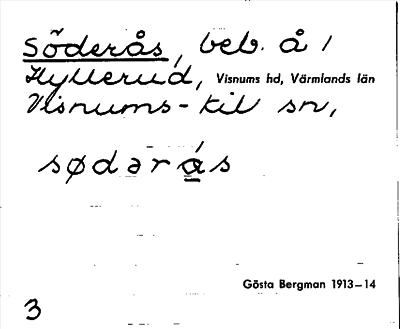 Söderås, beb. å /
Hyllerud, Visnums hd, Värmlands län
Visnums-kil sn,
sødərǻ̲s
Gösta Bergman 1913–14
3